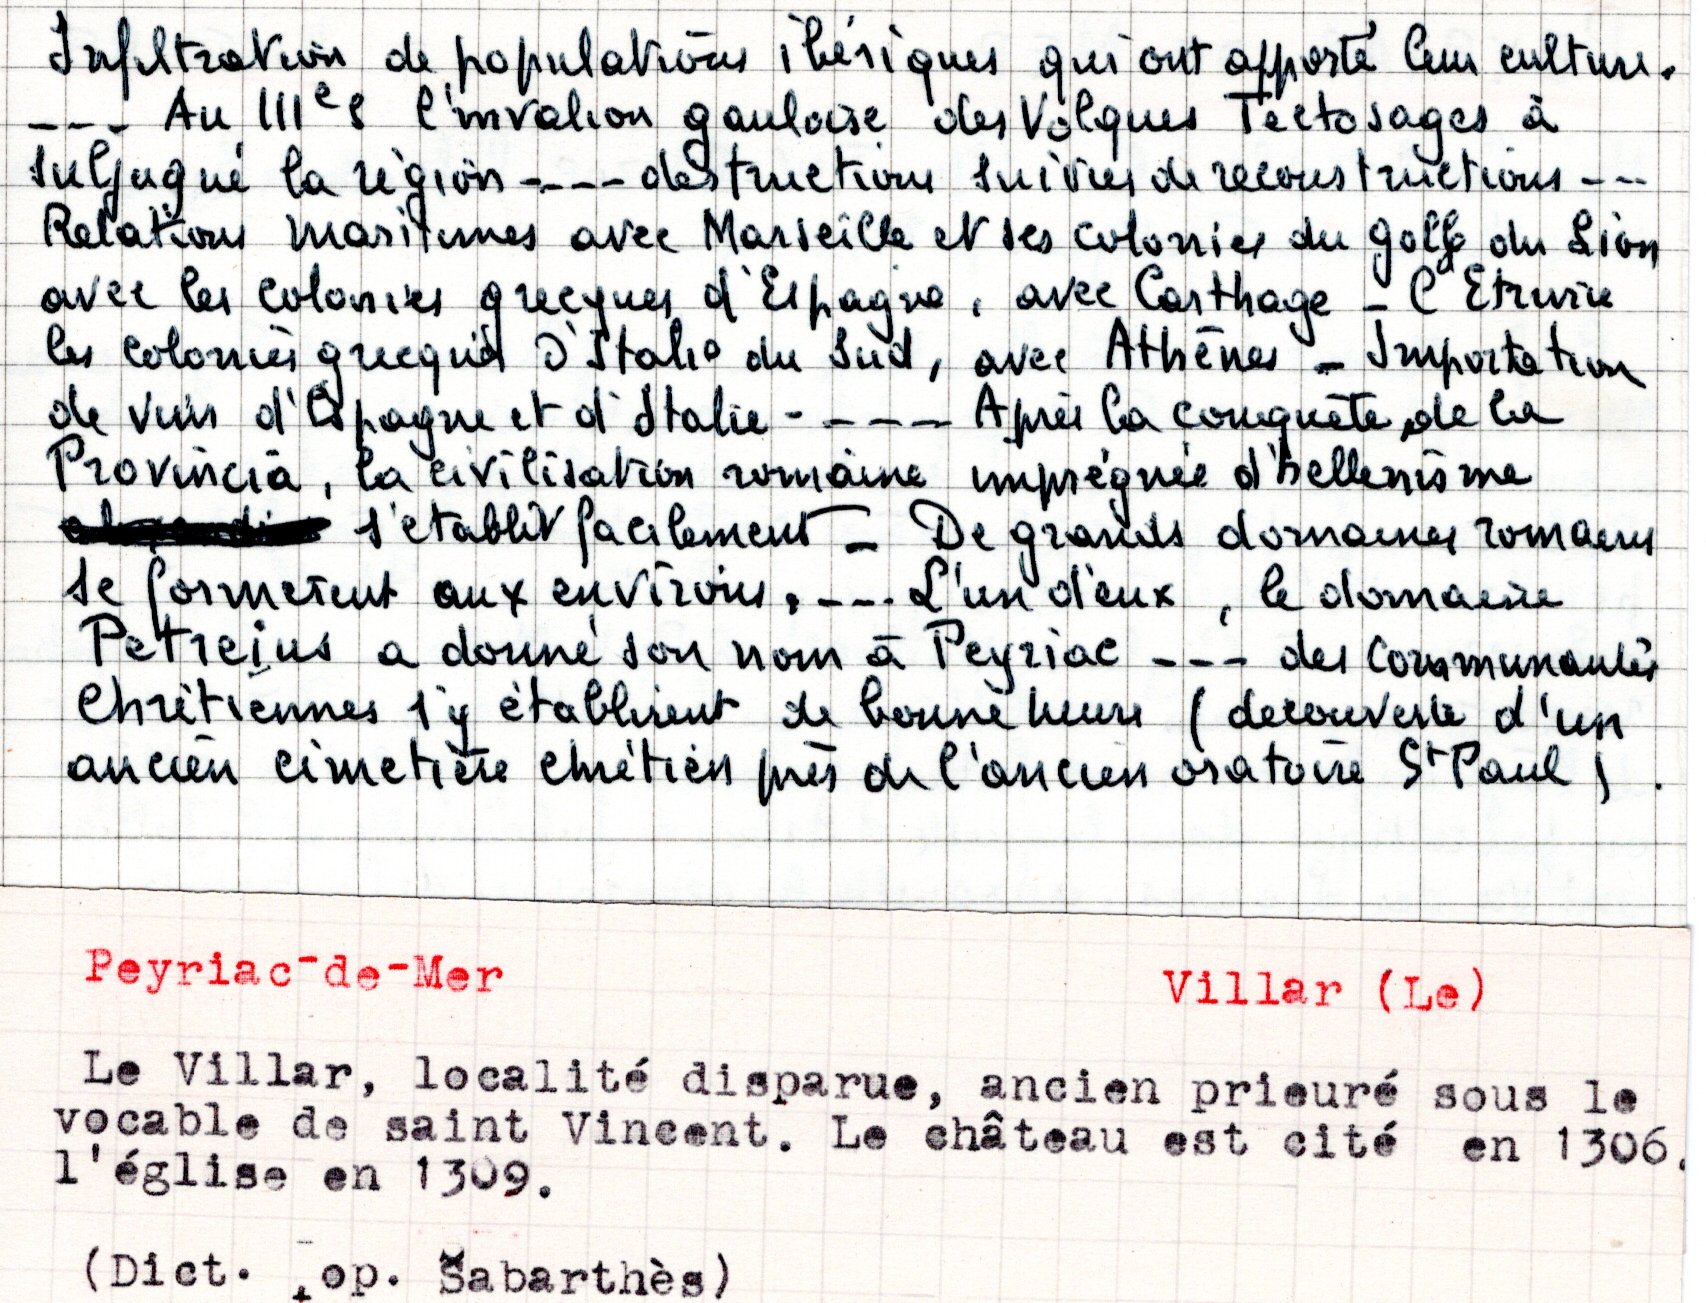 Infiltration de populations ibériques qui ont apporté leur culture.
--- Au IIIe s l'invasion gauloise des Volques Tectosages à
subjugué la région ---- destructions suivies de reconstructions ---
Relations maritimes avec Marseille et ses colonies du golfe du Lion
avec les colonies grecques d'Espagne, avec Carthage - l'Etrurie
les colonies grecques d'Italie du Sud, avec Athènes - Importation
de vins d'Espagne et d'Italie ----- Après la conquête de la
Provincia, la civilisation romaine imprégnée d'hellenisme
s'établit facilement - De grands domaines romains
se formèrent aux environs, --- L'un d'eux, le domaine
Petreius a donné son nom à Peyriac --- des Communautés
Chrétiennes s'y établirent de bonne heure (decouverte d'un
ancien cimetière chrétien près de l'ancien oratoire St Paul).
Peyriac-de-Mer Villar (Le)
Le Villar, localité disparue, ancien prieuré sous le
vocable de saint Vincent. Le château est cité en 1306.
l'église en 1309.
(Dict. op. Sabarthès)